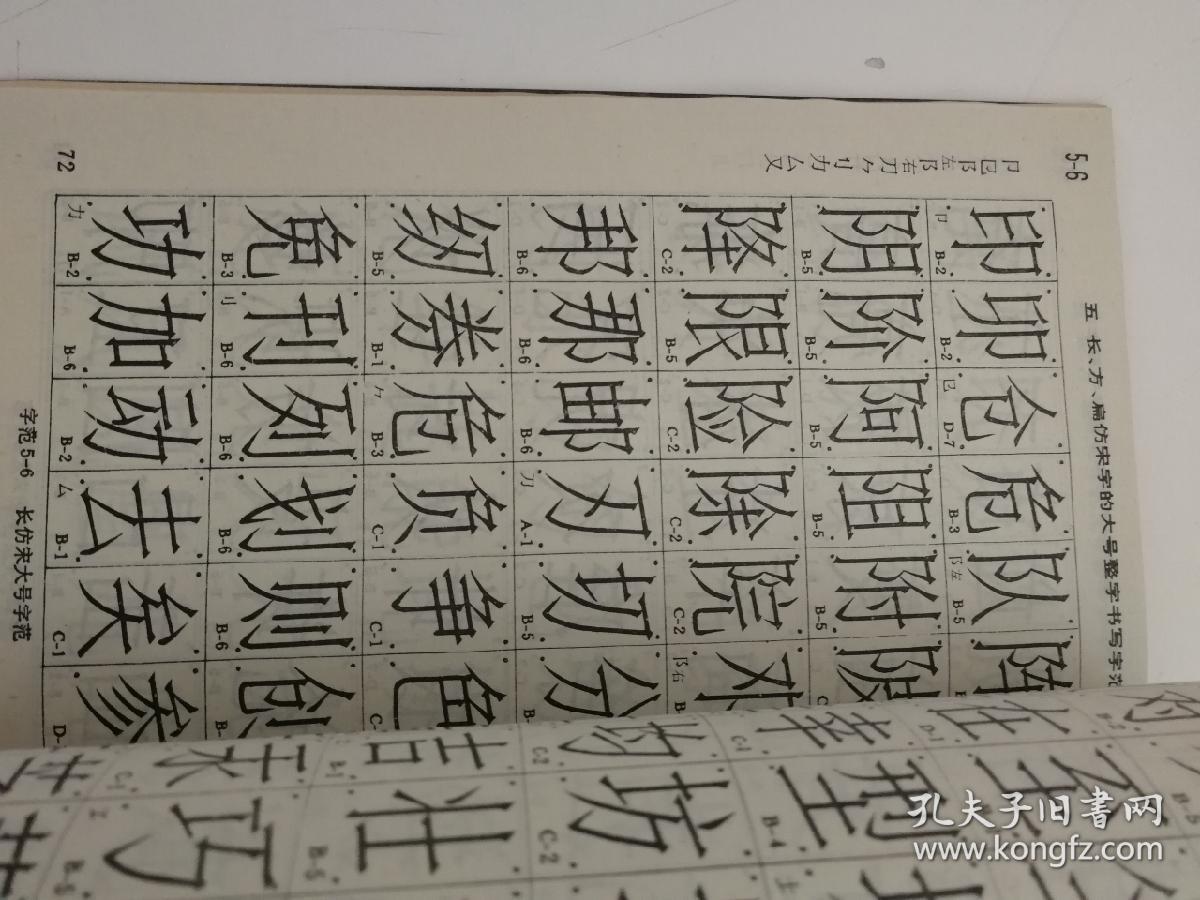 5-6 五 长、方、扁仿宋字的大号整字书写字范
卩㔾阝左阝右刀⺈刂力厶又
印 卯 仓 危 队 阵
卩 B-2 B-2 㔾 D-7 B-3 阝左 B-5
阴 阶 阿 阻 附
B-5 B-5 B-5 B-5 B-5
降 限 险 除 院
C-2 B-5 C-2 C-2 C-2 阝右
邦 那 邮 刃 切 分
B-6 B-6 B-6 刀 A-1 B-5
纫 券 危 负 争 色
B-5 B-1 ⺈ B-3 C-1 C-1
免 刊 列 划 则 创
B-3 刂 B-6 B-6 B-6 B-6
功 加 动 去 矣 参
力 B-2 B-6 B-2 厶 B-1 C-1
72 字范5-6 长仿宋大号字范
在 幸 吉
至 型 坊 壮 巧
B-4 C-2 B-5
孔夫子旧书网
www.kongfz.com